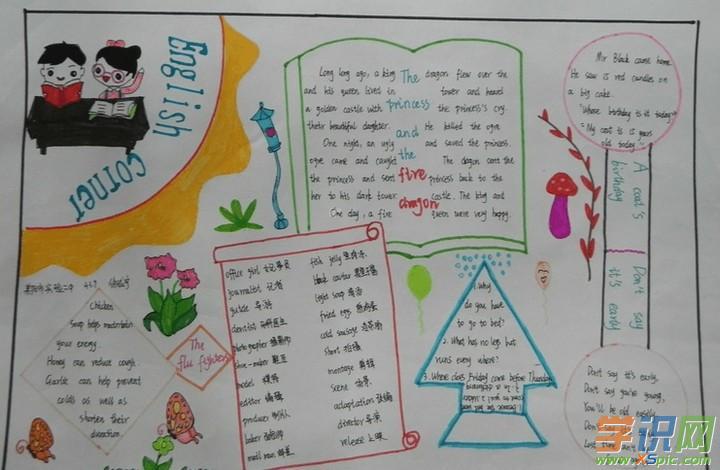 English
corner
Long long ago, a king
and his queen lived in
a golden castle with
their beautiful daughter.
One night, an ugly
ogre came and caught
the princess and sent
her to his dark tower
One day, a fire
The
princess
and
the
fire
dragon
dragon flew over the
tower and heard
the princess's cry.
He killed the ogre
and saved the princess.
The dragon sent the
princess back to the
castle. The king and
queen were very happy.
Mr Black came home.
He saw is red candles on
a big cake.
"Whose birthday is it today?"
"My coat is is years
old today."
A coat's
birthday
Don't say
it's early
Don't say it's early,
Don't say you're young,
You'll be old easily
Chicken
Soup helps
your energy.
Honey can reduce cough.
Garlic can help prevent
colds as well as
shorten their
The
flu fighters
office girl
journalist 记者
guide 导游
dentist
photographer 摄影师
model 模特
editor 编辑
producer 制片人
baker
mail man
fish jelly
black
light soup 清汤
fried eggs
cold sausage
short
montage 剪辑
scene
adaptation 改编
director 导演
release 上映
1. Why
do you have
to go to bed?
2. What has no legs but
runs every where?
3. Where does Friday come before Thursday
学识网
www.xspic.com